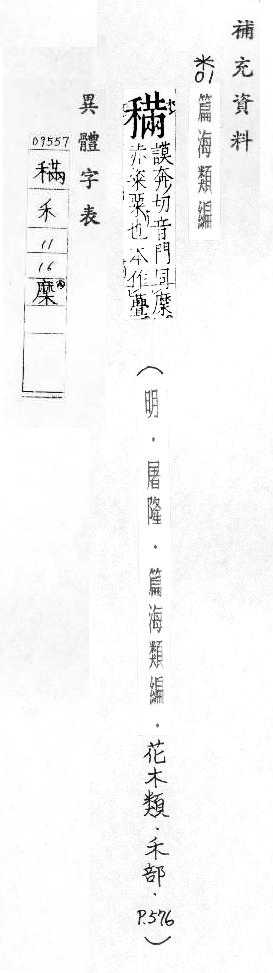 補充資料
※01
篇海類編
謨奔切音門同穈
赤粱粟也本作虋
(明．屠隆．篇海類編．花木類．禾部．P.576)
異體字表
09557
禾
11
16
穈